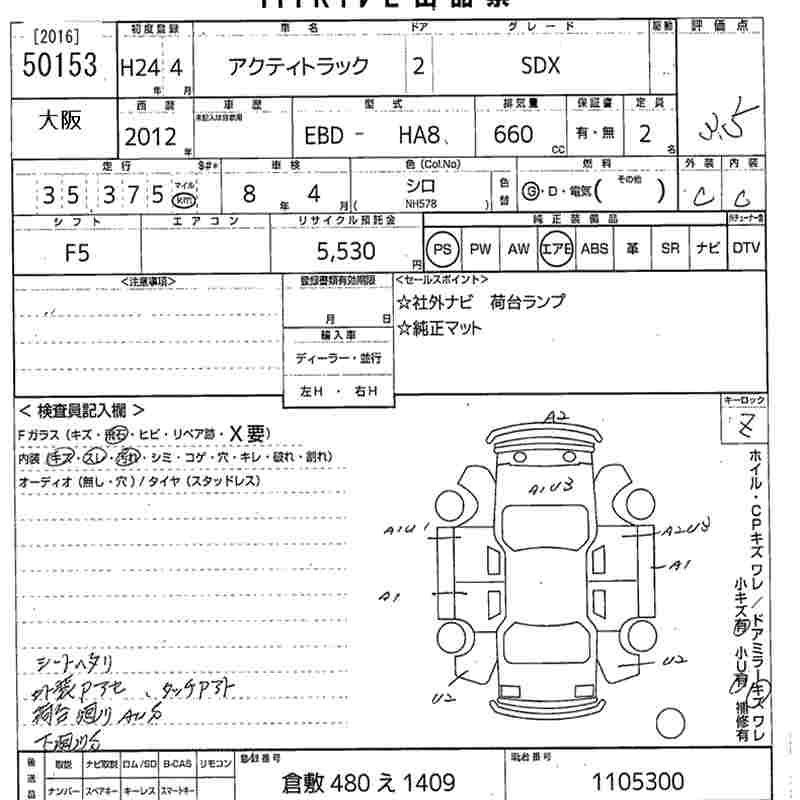 [2016]
50153
大阪
初度登録
H24 4
年 月
車名
アクティトラック
ドア
2
グレード
SDX
駆動
評価点
3.5
西暦
2012 年
車歴
未記入は自家用
型式
EBD - HA8
排気量
660 CC
保証書
有・無
定員
2 名
走行
35,375
マイル
km
車検
8 年 4 月
色 (Col.No)
シロ
( NH578 )
色替
燃料
G・D・電気( その他 )
外装
C
内装
C
シフト
F5
エアコン
リサイクル預託金
5,530 円
純正装備品
PS PW AW エアB ABS 革 SR ナビ DTV
<注意事項>
登録書類有効期限
月 日
輸入車
ディーラー・並行
左H ・ 右H
<セールスポイント>
☆社外ナビ 荷台ランプ
☆純正マット
キーロック
< 検査員記入欄 >
Fガラス (キズ・飛石・ヒビ・リペア跡・X要)
内装 (キズ・スレ・汚れ・シミ・コゲ・穴・キレ・破れ・割れ)
オーディオ (無し・穴) / タイヤ (スタッドレス)
A2
A1U3
A1U1
A2U3
A1
A1
U2
U2
ホイル・CPキズ ワレ / ドアミラーキズ ワレ
小キズ有 小U有 補修有
シートヘタリ
外装アアセ、タッチアト
荷台廻り AU分
後送品
取説 ナビ取説 ロム/SD B-CAS リモコン
ナンバー スペアキー キーレス スマートキー
登録番号
倉敷 480 え 1409
車台番号
1105300